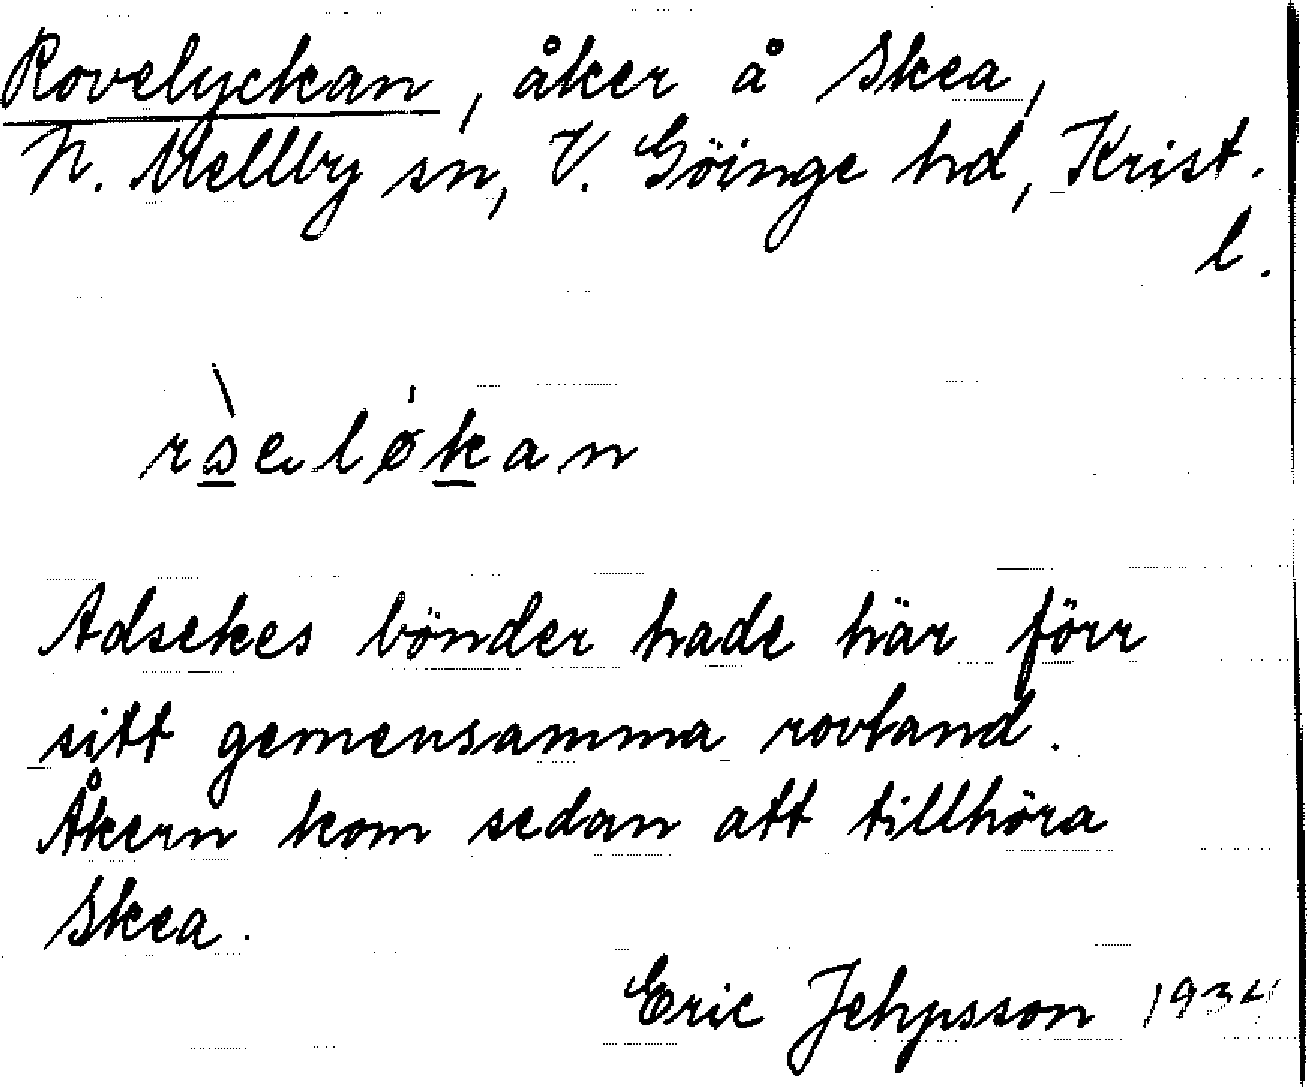 Rovelyckan, åker å Skea,
N. Mellby sn, V. Göinge hd, Krist.
l.
Adsekes bönder hade här förr
sitt gemensamma rovland.
Åkern kom sedan att tillhöra
Skea.
Eric Jehpsson 1934